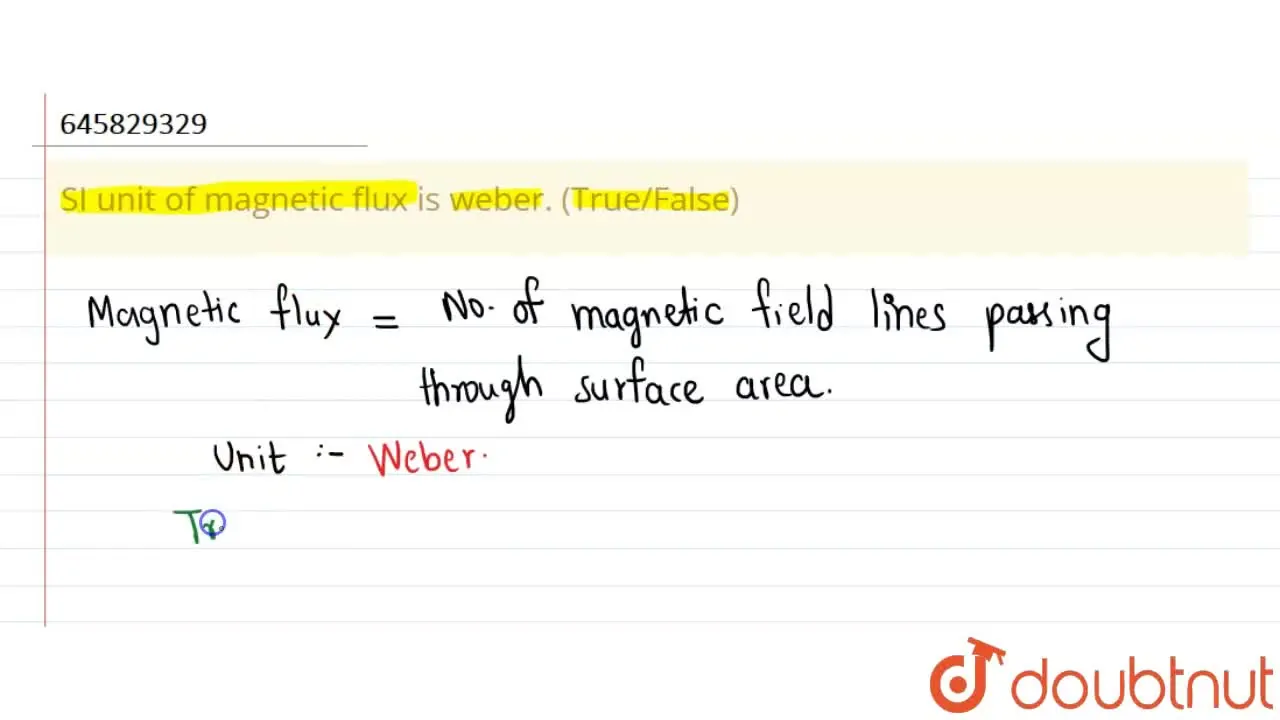 645829329
SI unit of magnetic flux is weber. (True/False)
Magnetic flux = No. of magnetic field lines passing
through surface area.
Unit :- Weber.
Tr
doubtnut